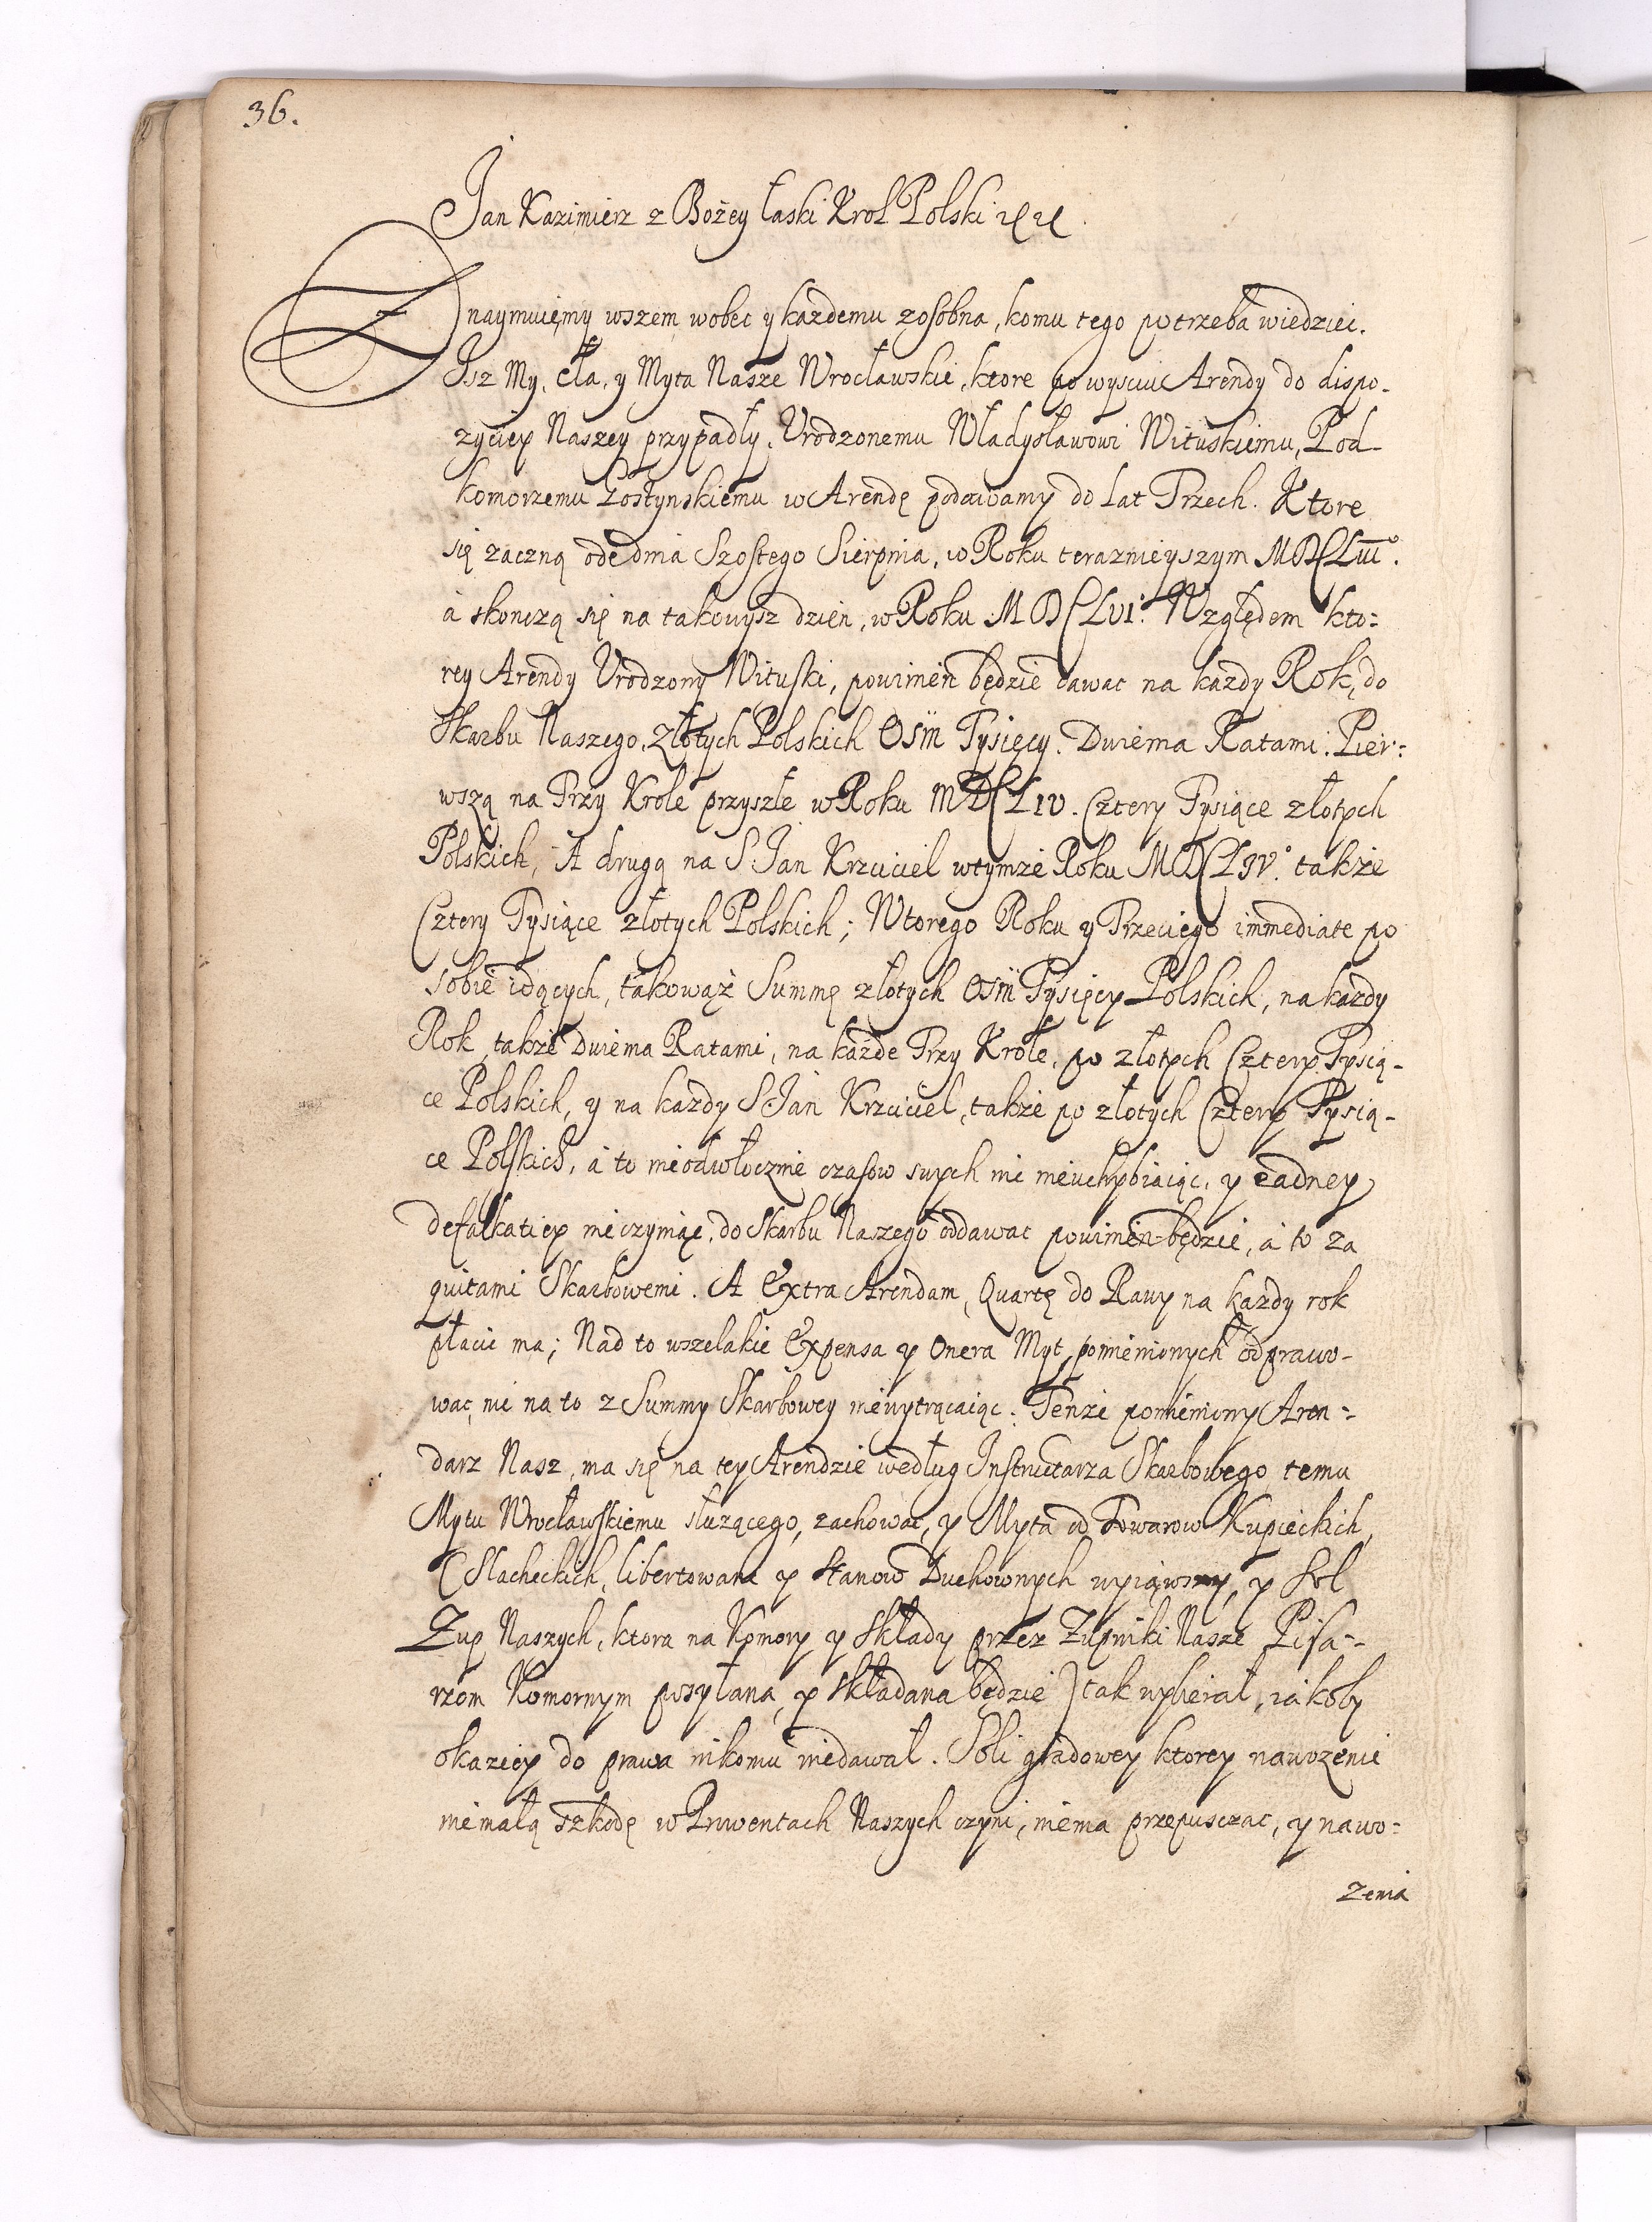 36.
Jan Kazimierz z Bożey łaski Krol Polski etc etc.
Oznaymuiemy wszem wobec y każdemu zosobna, komu tego potrzeba wiedziec.
Isz My, Cła, y Myta Nasze Wrocławskie, ktore po wysciu Arendy do dispo-
zyciey Naszey przypadły, Vrodzonemu Władysławowi Wituskiemu, Pod-
komorzemu Gostynskiemu w Arendę podawamy do Lat Trzech. Ktore
się zaczną ode dnia Szostego Sierpnia, w Roku teraznieyszym MDCLIII°.
a skonczą się na takowysz dzien, w Roku MDCLVI°. Względem kto-
rey Arendy Vrodzony Wituski, powinien będzie dawac na kazdy Rok, do
Skarbu Naszego, złotych Polskich Osm Tysięcy. Dwiema Ratami: Pier-
wszą na Trzy Krole przyszłe w Roku MDCLIV. Cztery Tysiące złotych
Polskich, A drugą na S. Jan Krzciciel w tymże Roku MDCLIV°. także
Cztery Tysiące złotych Polskich; Wtorego Roku y Trzeciego immediate po
sobie idących, takowąż Summę złotych Osm Tysięcy Polskich, na kazdy
Rok, także Dwiema Ratami, na każde Trzy Krole, po złotych Cztery Tysią-
ce Polskich, y na kazdy S. Jan Krzciciel, także po złotych Cztery Tysią-
ce Polskich, a to nieodwłocznie czasow swych nic nieuchybiaiąc, y żadney
defalkatiey nieczyniąc, do Skarbu Naszego oddawac powinien będzie, a to za
quitami Skarbowemi. A Extra Arendam, Quartę do Rawy na kazdy rok
płacic ma; Nad to wszelakie Expensa y Onera Myt pomienionych odprawo-
wac, nic na to z Summy Skarbowey niewytrącaiąc. Tenże pomieniony Aren-
darz Nasz, ma się na tey Arendzie według Instructarza Skarbowego temu
Mytu Wrocławskiemu służącego, zachowac, y Myta od Towarow Kupieckich,
(Slacheckich, libertowane y stanow Duchownych wyiąwszy, y Sol
Zup Naszych, ktora na Komory y Składy przez Zupniki Nasze Pisa-
rzom Komornym posyłana, y składana będzie) tak wybierał, iakoby
okaziey do prawa nikomu niedawał. Soli gładowey ktorey nawozenie
niemałą szkodę w Prowentach Naszych czyni, niema przepusczac, y nawo-
zenia